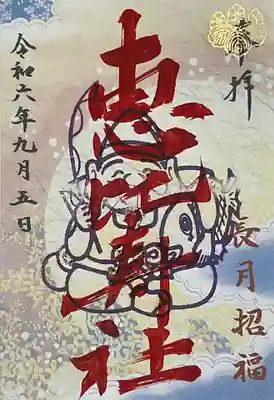 奉拝
恵比寿社
長月招福
令和六年九月五日